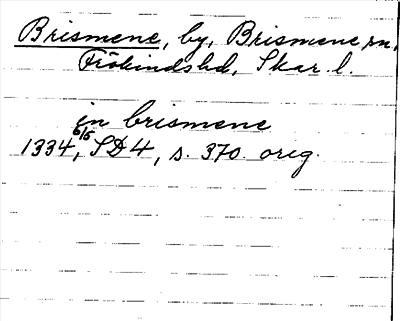 Brismene, by, Brismene sn,
Frökinds hd, Skar. l.
in brismene
1334 6/5, SD 4, s. 370. orig.